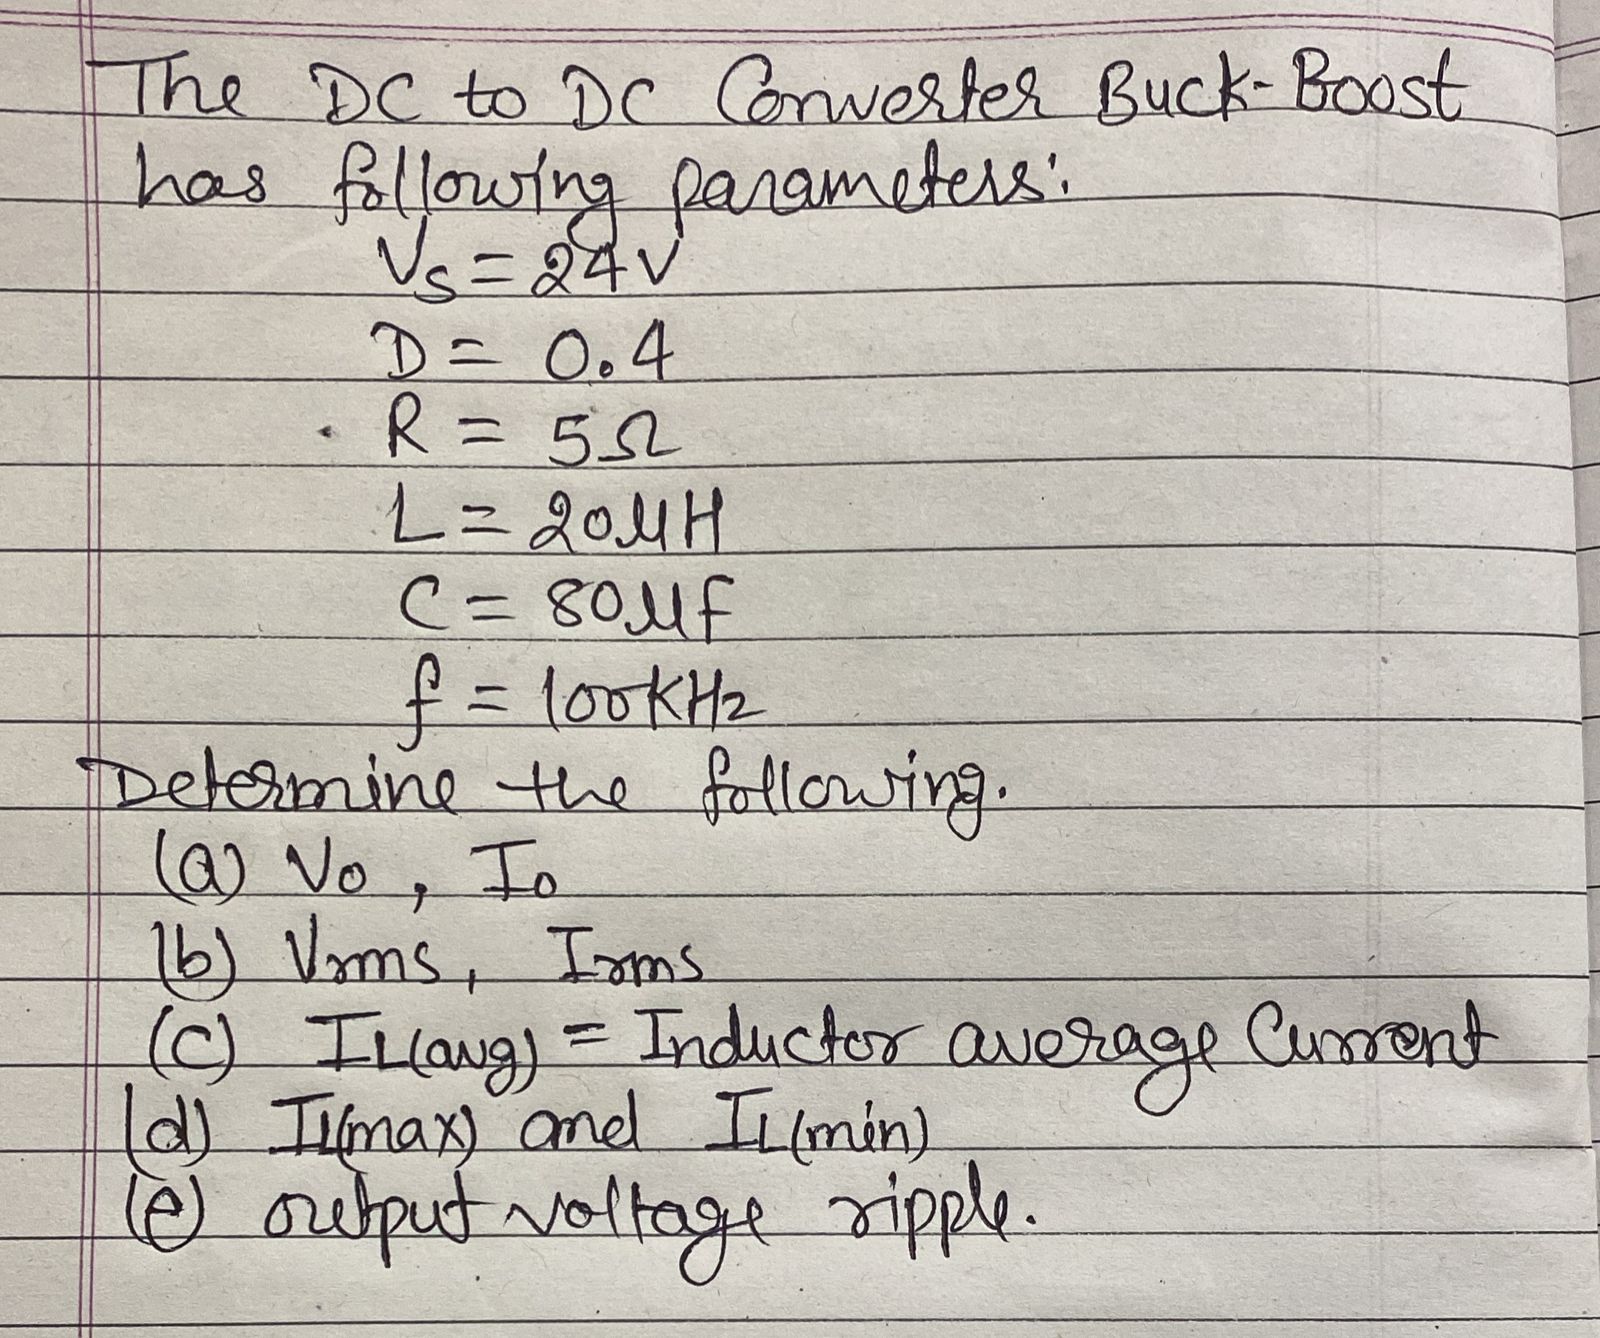 The DC to DC Converter Buck-Boost
has following parameters:
Vs = 24V
D = 0.4
R = 5Ω
L = 20μH
C = 80μf
f = 100kHz
Determine the following.
(a) Vo , Io
(b) Vrms, Irms
(c) IL(avg) = Inductor average Current
(d) IL(max) and IL(min)
(e) output voltage ripple.